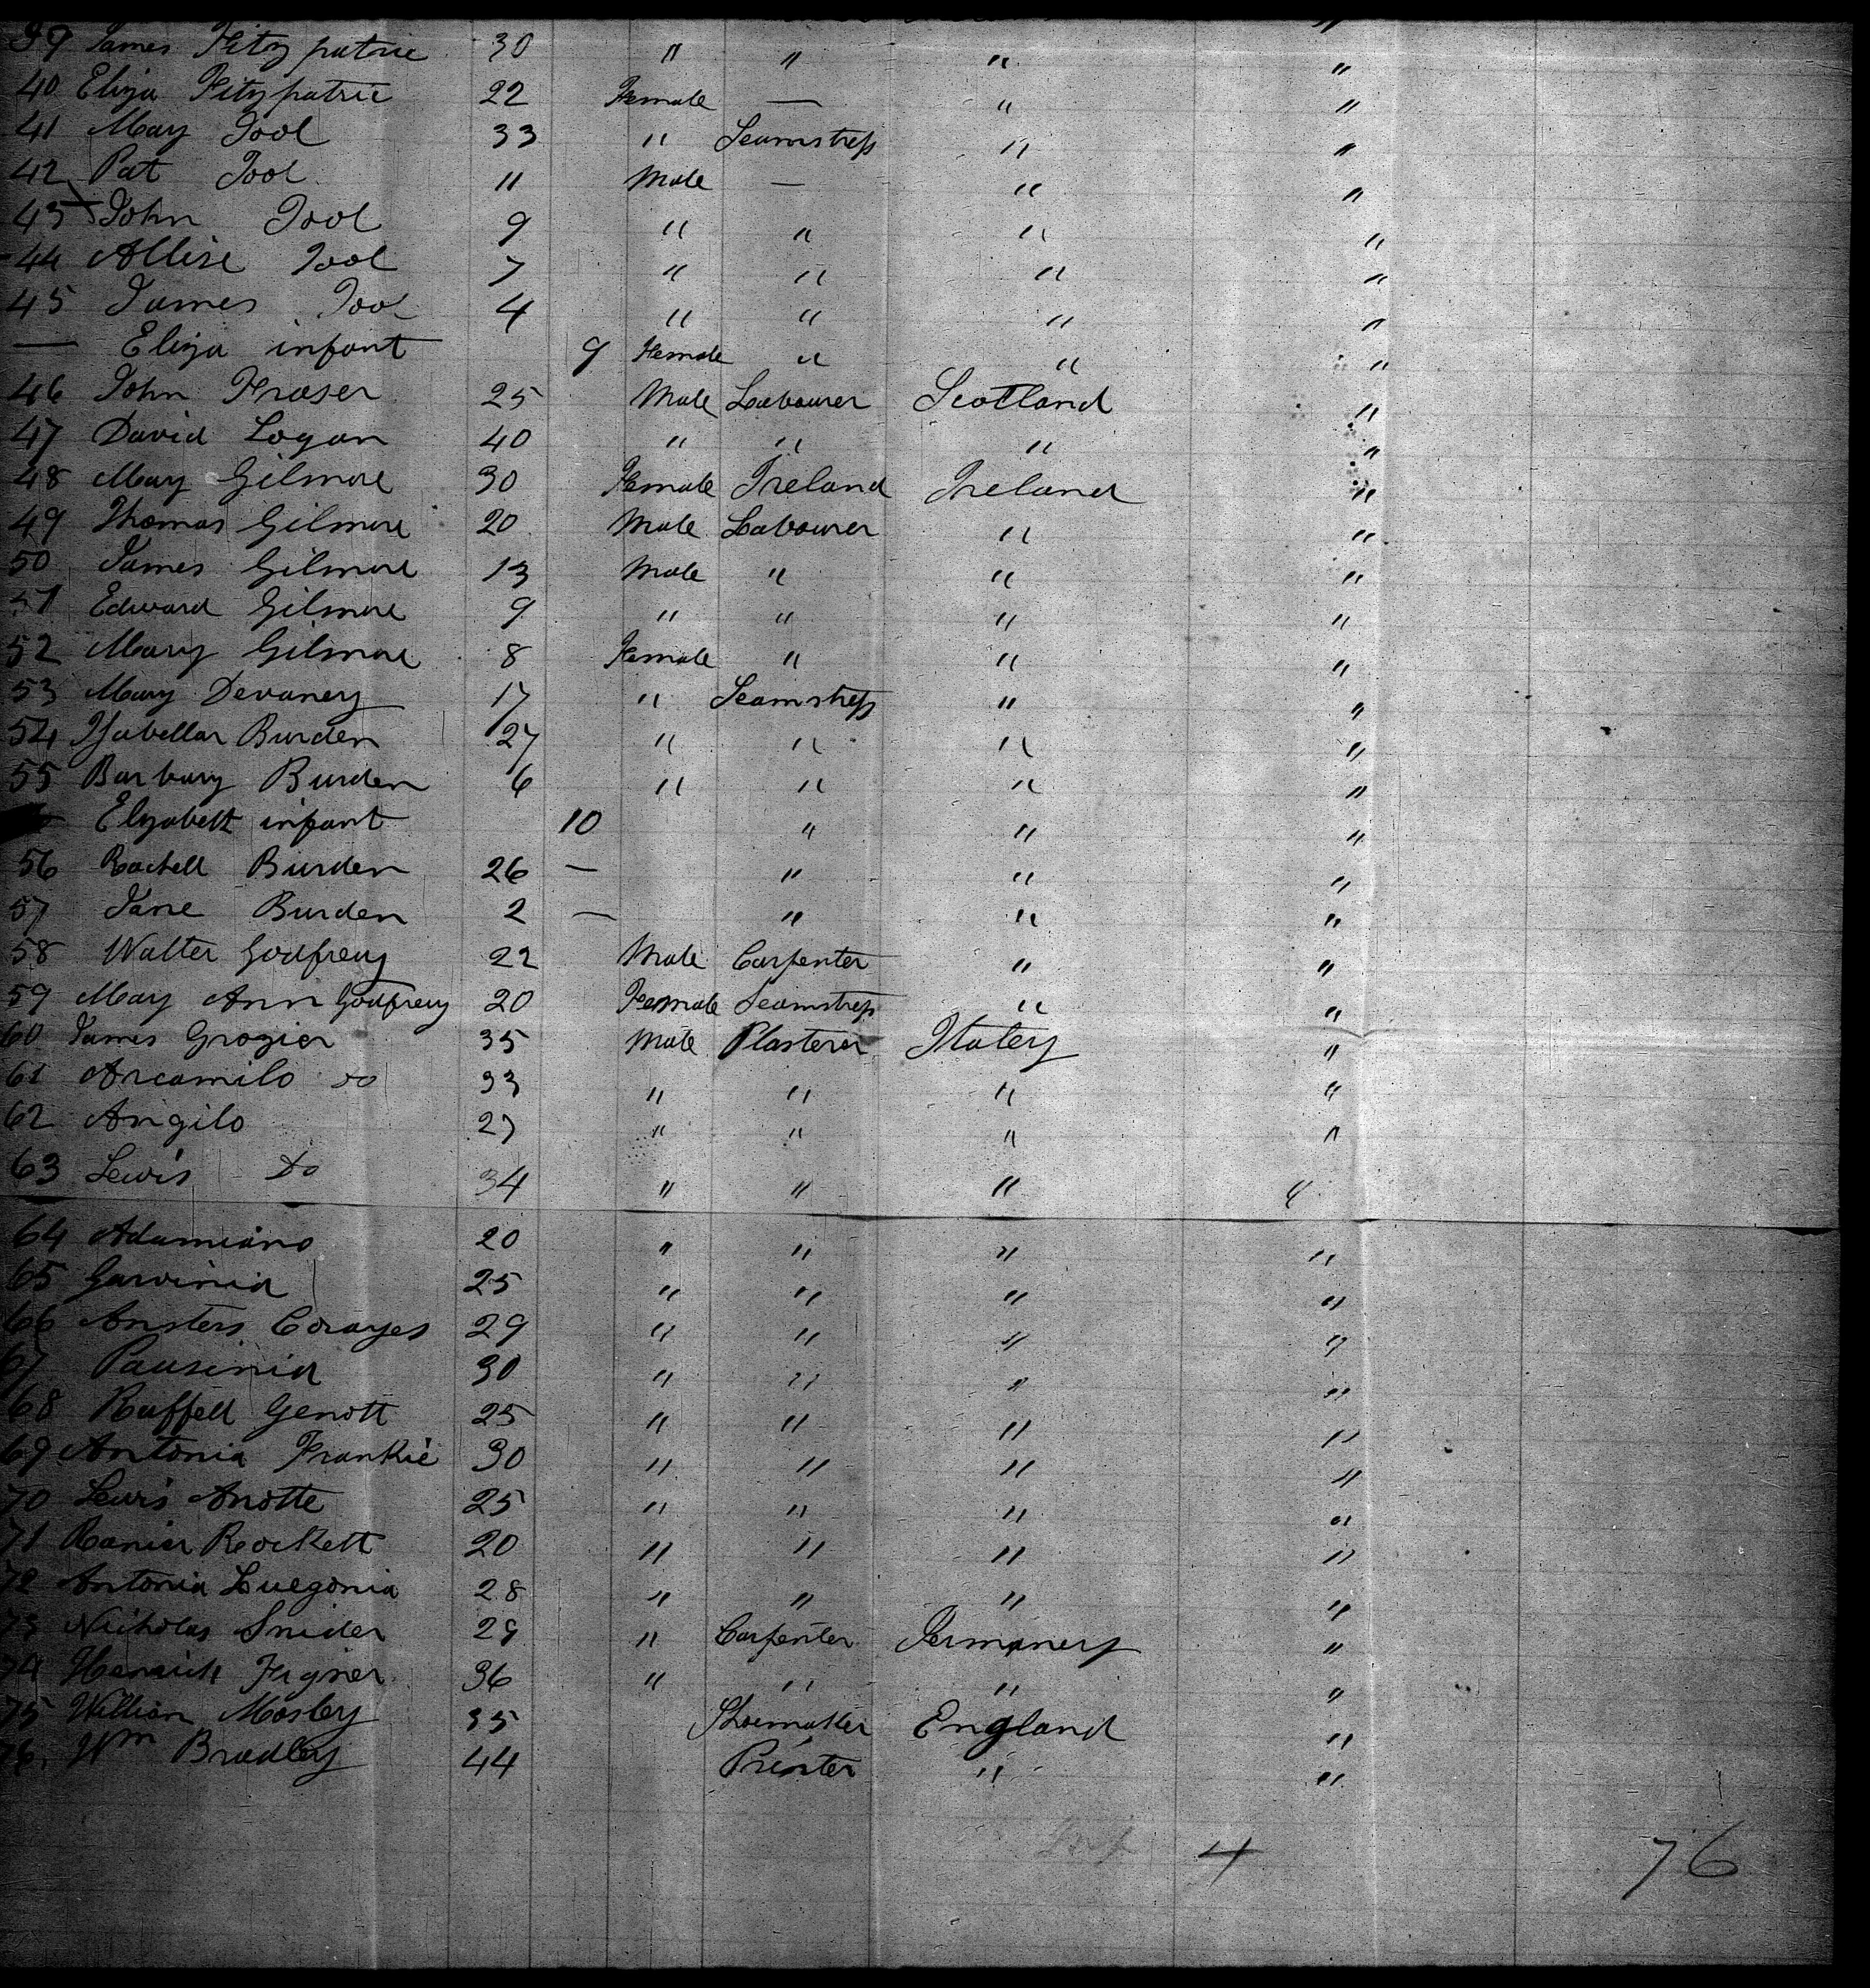 39 James Fitzpatric 30 " " " "
40 Eliza Fitzpatric 22 Female — " "
41 Mary Tool 33 " Seamstress " "
42 Pat Tool 11 Male — " "
43 John Tool 9 " " " "
44 Allise Tool 7 " " " "
45 James Tool 4 " " " "
— Eliza infant 9 Female " " "
46 John Fraser 25 Male Labourer Scotland "
47 David Logan 40 " " " "
48 Mary Gilmore 30 Female Ireland Ireland "
49 Thomas Gilmore 20 Male Labourer " "
50 James Gilmore 13 Male " " "
51 Edward Gilmore 9 " " " "
52 Mary Gilmore 8 Female " " "
53 Mary Devaney 17 " Seamstress " "
54 Isabellar Burden 27 " " " "
55 Barbary Burden 6 " " " "
Elizabett infant 10 " " "
56 Rachell Burden 26 — " " "
57 Jane Burden 2 — " " "
58 Walter Godfrey 22 Male Carpenter " "
59 Mary Ann Godfrey 20 Female Seamstress " "
60 James Grozier 35 Male Plasterer Italey "
61 Arcamilo do 33 " " " "
62 Angilo 27 " " " "
63 Lewis Do 34 " " " "
64 Adamiano 20 " " " "
65 Garvinia 25 " " " "
66 Ansters Corayes 29 " " " "
67 Pausinia 30 " " " "
68 Raffell Genott 25 " " " "
69 Antonia Frankie 30 " " " "
70 Lewis Anotte 25 " " " "
71 Ranier Rockett 20 " " " "
72 Antonia Luegonia 28 " " " "
73 Nicholas Snider 29 " Carpenter Germaney "
74 Henrick Figner 36 " " " "
75 William Mosley 35 Shoemaker England "
76. Wm Bradley 44 Printer " "
4 76